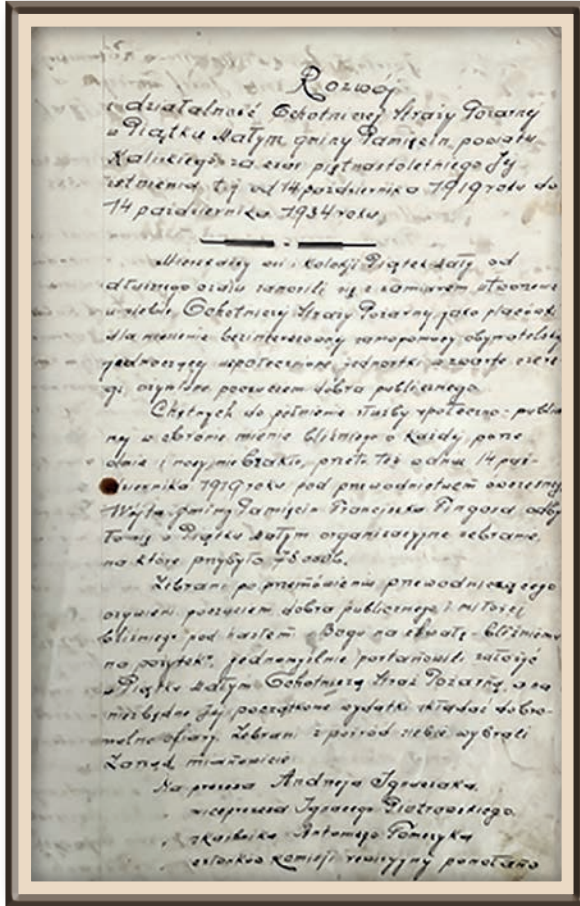 Rozwój
i działalność Ochotniczej Straży Pożarnej
w Piątku Małym gminy Pamięcin, powiatu
Kaliskiego za czas piętnastoletniego Jej
istnienia, t.j. od 14 października 1919 roku do
14 października 1934 roku.
Mieszkańcy wsi i kolonji Piątek Mały od
dłuższego czasu nosili się z zamiarem utworzenia
u siebie Ochotniczej Straży Pożarnej, jako placówki
dla niesienia bezinteresownej samopomocy obywatelskiej
jednoczącej uspołecznione jednostki w zwarte szere-
gi ożywione poczuciem dobra publicznego.
Chętnych do pełnienia służby społeczno-publicz
nej w obronie mienia bliźniego o każdej porze
dnia i nocy nie brakło, przeto też w dniu 14 paź-
dziernika 1919 roku pod przewodnictwem owczesnego
Wójta gminy Pamięcin Franciszka odby
ło się w Piątku Małym organizacyjne zebranie,
na które przybyło osób.
Zebrani po przemówieniu przewodniczącego
ożywieni poczuciem dobra publicznego i miłości
bliźniego pod hasłem "Bogu na chwałę - bliźniemu
na pożytek", jednomyślnie postanowili założyć
w Piątku Małym Ochotniczą Straż Pożarną, a na
niezbędne Jej początkowe wydatki składać dobro-
wolne ofiary. Zebrani z pośród siebie wybrali
Zarząd mianowicie:
Na prezesa Andrzeja
wiceprezesa Ignacego Piotrowskiego,
skarbnika Antoniego Tomczyka
członków komisji rewizyjnej powołano